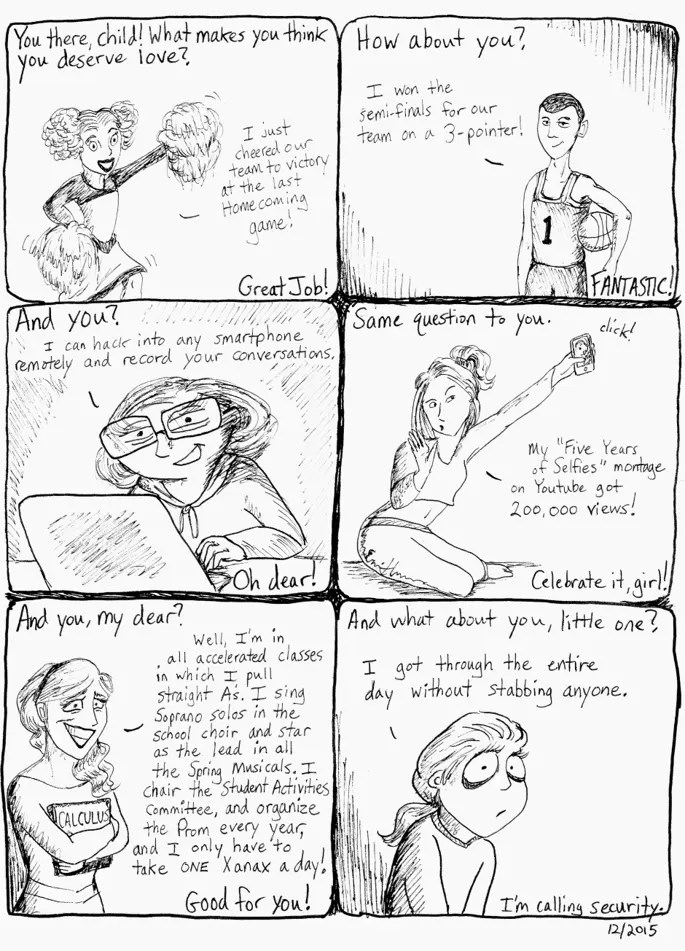 You there, child! What makes you think
you deserve love?
I just
cheered our
team to victory
at the last
Homecoming
game!
Great Job!
How about you?
I won the
semi-finals for our
team on a 3-pointer!
1
FANTASTIC!
And you?
I can hack into any smartphone
remotely and record your conversations.
Oh dear!
Same question to you.
click!
My "Five Years
of Selfies" montage
on Youtube got
200,000 views!
Celebrate it, girl!
And you, my dear?
Well, I'm in
all accelerated classes
in which I pull
straight A's. I sing
Soprano solos in the
school choir and star
as the lead in all
the Spring Musicals. I
chair the Student Activities
Committee, and organize
the Prom every year,
and I only have to
take ONE Xanax a day!
CALCULUS
Good for you!
And what about you, little one?
I got through the entire
day without stabbing anyone.
I'm calling security.
12/2015